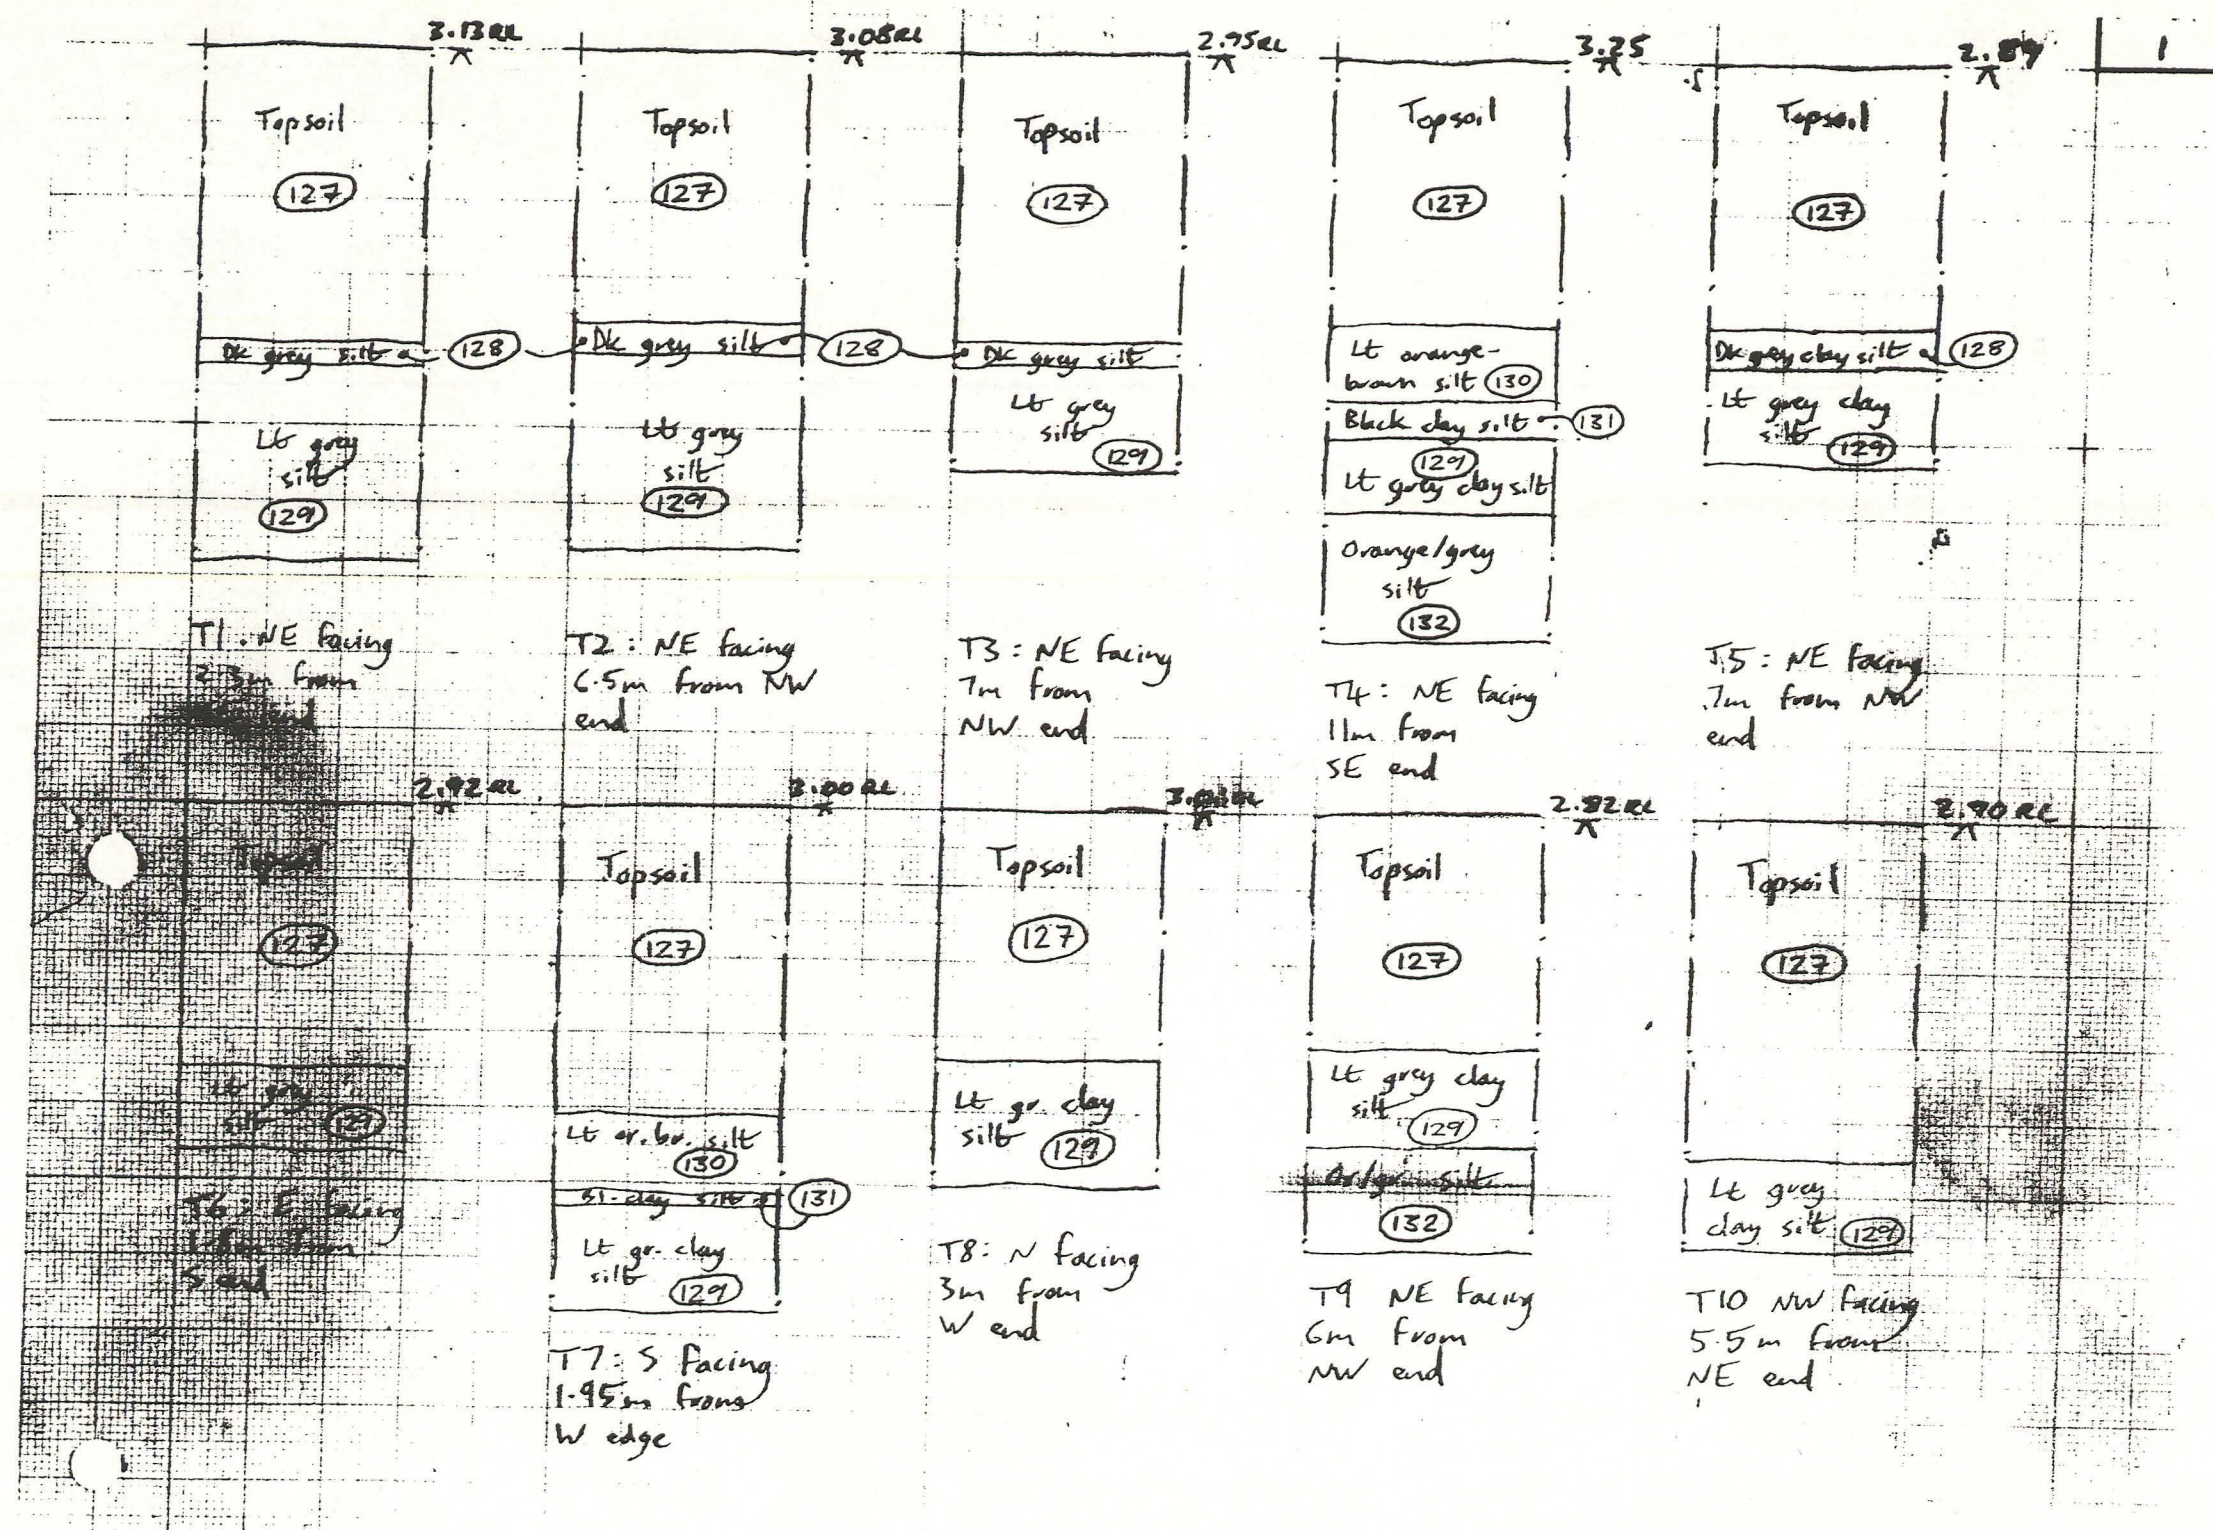 3.13 RL
Topsoil
127
Dk grey silt
128
Lt grey
silt
129
T1: NE facing
2.3m from
end
3.08 RL
Topsoil
127
Dk grey silt
128
Lt grey
silt
129
T2: NE facing
6.5m from NW
end
2.95 RL
Topsoil
127
Dk grey silt
Lt grey
silt
129
T3: NE facing
7m from
NW end
3.25
Topsoil
127
Lt orange-
brown silt 130
Black clay silt
131
129
Lt grey clay silt
Orange/grey
silt
132
T4: NE facing
11m from
SE end
2.89
1
Topsoil
127
Dk grey clay silt
128
Lt grey clay
silt 129
T5: NE facing
7m from NW
end
2.92 RL
Topsoil
127
Lt grey
silt 129
T6: E facing
from
S end
3.00 RL
Topsoil
127
Lt or. br. silt
130
Bl. clay silt
131
Lt gr. clay
silt 129
T7: S facing
1.95m from
W edge
Topsoil
127
Lt gr. clay
silt 129
T8: N facing
3m from
W end
2.82 RL
Topsoil
127
Lt grey clay
silt 129
Or/gr. silt
132
T9 NE facing
6m from
NW end
2.90 RL
Topsoil
127
Lt grey
clay silt 129
T10 NW facing
5.5m from
NE end